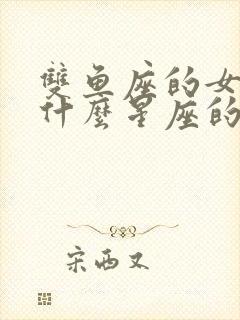 雙魚座的女
什麼星座的
宋西又